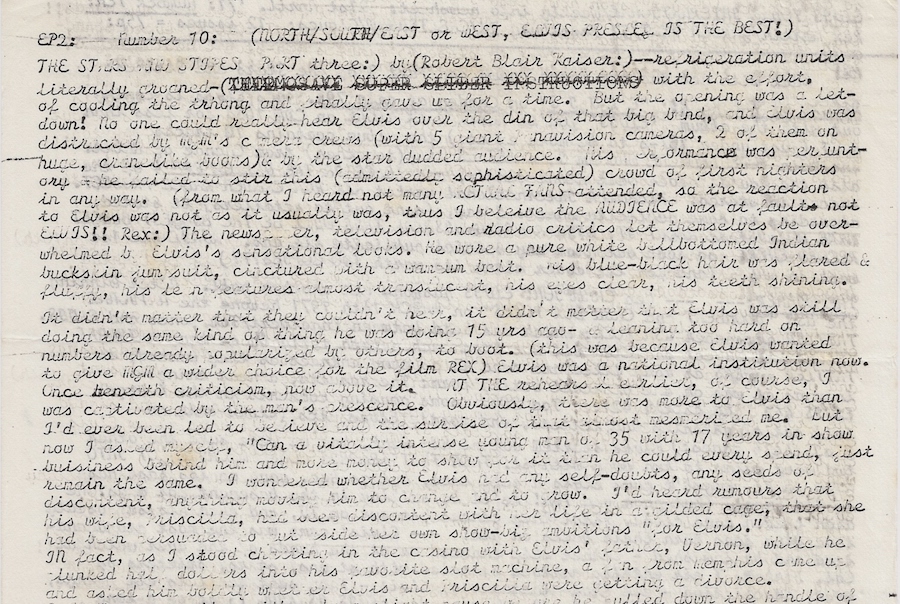 EP2: Number 10: (NORTH/SOUTH/EAST or WEST, ELVIS PRESLEY IS THE BEST!)
THE STARS AND STIPES PART three:) by(Robert Blair Kaiser:)--refrigeration units
literally groaned-(THERMOSAVE SUPER SLIDER IN INSTRUCTIONS) with the effort.
of cooling the trhong and finally gave up for a time. But the opening was a let-
down! No one could really hear Elvis over the din of that big band, and Elvis was
distracted by MGM's camera crews (with 5 giant Panavision cameras, 2 of them on
huge, cranelike booms)& by the star dudded audience. His performance was perfunt-
ory & he failed to stir this (admittedly sophisticated) crowd of first nighters
in any way. (from what I heard not many ACTUAL FANS attended, so the reaction
to Elvis was not as it usually was, thus I beleive the AUDIENCE was at fault not
ELVIS!! Rex:) The newspaper, television and radio critics let themselves be over-
whelmed by Elvis's sensational looks. He wore a pure white bellbottomed Indian
buckskin jumpsuit, cinctured with a wampum belt. His blue-black hair was flared &
fluffy, his lean features almost translucent, his eyes clear, his teeth shining.
It didn't matter that they couldn't hear, it didn't matter that Elvis was still
doing the same kind of thing he was doing 15 yrs ago- & leaning too hard on
numbers already popularized by others, to boot. (this was because Elvis wanted
to give MGM a wider choice for the film REX) Elvis was a national institution now.
Once beneath criticism, now above it. AT THE rehearsal earlier, of course, I
was captivated by the man's prescence. Obviously, there was more to Elvis than
I'd ever been led to believe and the surprise of that almost mesmerized me. But
now I asked myself, "Can a vitally intense young man of 35 with 17 years in show
buisiness behind him and more money to show for it than he could every spend, just
remain the same. I wondered whether Elvis had any self-doubts, any seeds of
discontent, anything moving him to change and to grow. I'd heard rumours that
his wife, Priscilla, had been discontent with her life in a gilded cage, that she
had been persuaded to put side her own show-biz ambitions "for Elvis."
IN fact, as I stood chatting in the casino with Elvis' father, Vernon, while he
plunked half dollars into his favorite slot machine, a fan from Memphis came up
and asked him boldly whether Elvis and Priscilla were getting a divorce.
pulled down the handle of